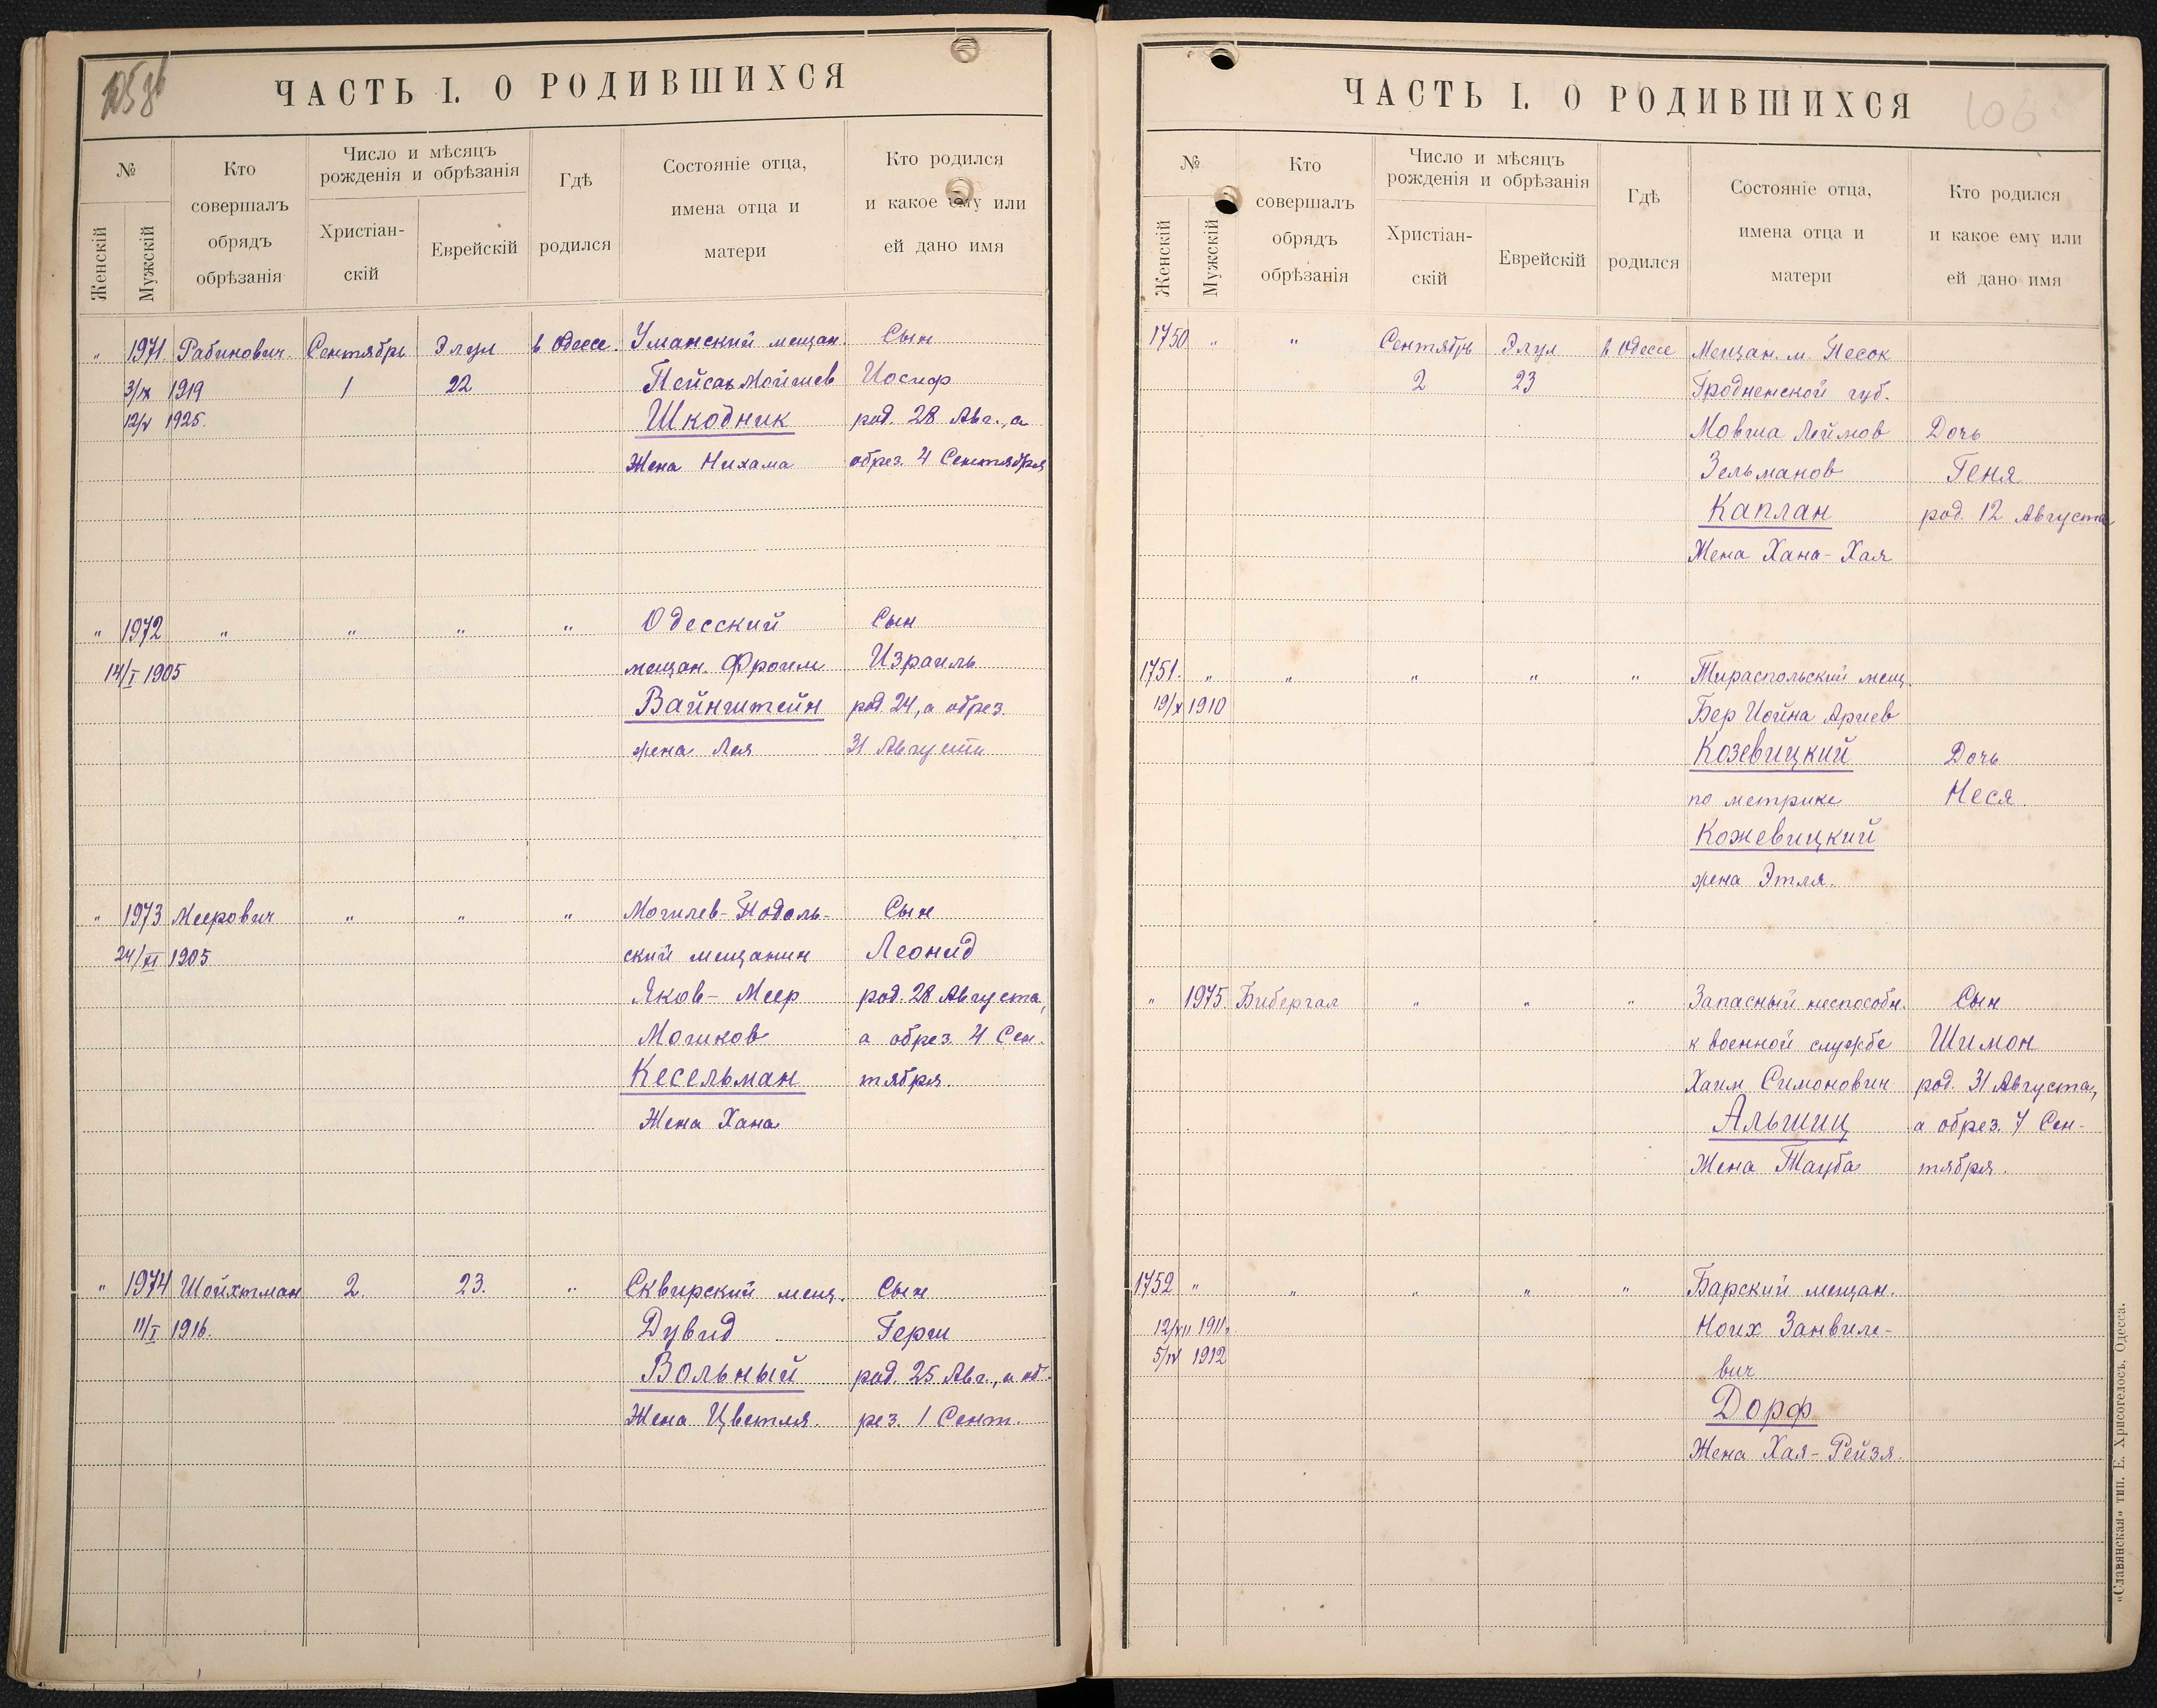 ЧАСТЬ I. О РОДИВШИХСЯ
№
Женскій
Мужскій
Кто
совершалъ
обрядъ
обрѣзанія
Число и мѣсяцъ
рожденія и обрѣзанія
Христіан-
скій
Еврейскій
Гдѣ
родился
Состояніе отца,
имена отца и
матери
Кто родился
и какое ему или
ей дано имя
" 1971 Рабинович Сентябрь Элул в Одессе. Уманский мещан. Сын
3/IX 1919 1 22 Пейсах Мойшев Иосиф
12/V 1925. Шкодник род. 28 Авг., а
Жена Нихама обрез. 4 Сентября
" 1972 " " " " Одесский Сын
14/I 1905 мещан. Фроим Израиль
Вайнштейн род. 24, а обрез.
жена Лея 31 Августа
" 1973 Меерович " " " Могилев-Подоль- Сын
24/XI 1905 ский мещанин Леонид
Яков-Меер род. 28 Августа,
Мошков а обрез. 4 Сен-
Кесельман тября
Жена Хана
" 1974 Шойхтман 2. 23. " Сквирский мещ. Сын
11/I 1916. Дувид Герш
Вольный род. 25 Авг., а об-
Жена Цветля. рез. 1 Сент.
ЧАСТЬ I. О РОДИВШИХСЯ
106
№
Женскій
Мужскій
Кто
совершалъ
обрядъ
обрѣзанія
Число и мѣсяцъ
рожденія и обрѣзанія
Христіан-
скій
Еврейскій
Гдѣ
родился
Состояніе отца,
имена отца и
матери
Кто родился
и какое ему или
ей дано имя
1750 " " Сентябрь Элул в Одессе Мещан. м. Песок
2 23 Гродненской губ.
Мовша Леймов Дочь
Зельманов Геня
Каплан род. 12 Августа
Жена Хана-Хая
1751. " " " " " Тираспольский мещ.
19/X 1910 Бер Иойна Ариев
Козевицкий Дочь
по метрике Неся.
Кожевицкий
жена Этля.
" 1975 Бибергал " " " Запасный неспособн. Сын
к военной службе Шимон
Хаим Симонович род. 31 Августа,
Альшиц а обрез. 7 Сен-
Жена Тауба тября.
1752 " " " " " Барский мещан.
12/XII 1911. Ноих Занвиле-
5/IV 1912 вич
Дорф
Жена Хая-Рейзя.
«Славянская» тип. Е. Хрисогелосъ. Одесса.